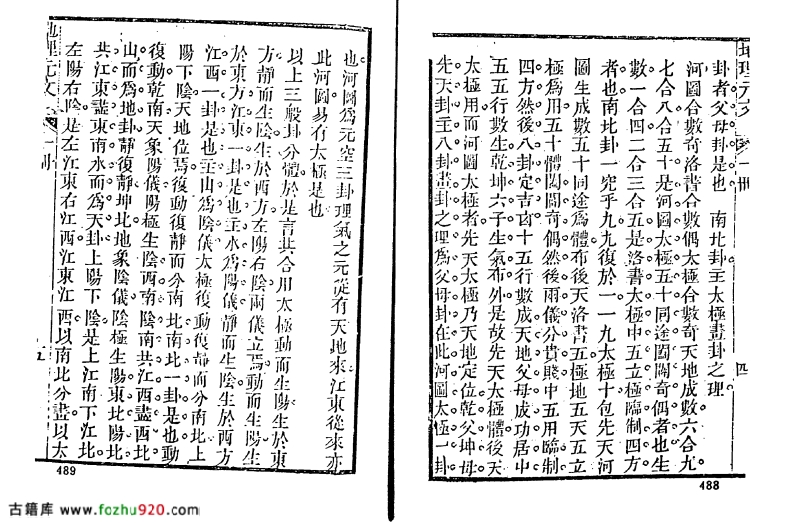 地理元文 卷一冊
四
卦者父母卦是也。 南北卦主太極畫卦之理
河圖合數奇洛書合數偶太極合數奇天地成數六合九
七合八合五十是河圖太極五十同途闔闢奇偶者也生
數一合四二合三合五是洛書太極中五立極臨制四方
者也南北卦一究乎九九復於一一九太極十包先天河
圖生成數五十同途爲體布後天洛書五極地五天五立
極爲用五十體闔闢奇偶然後兩儀分貴賤中五用臨制
四方然後八卦定吉凶十五行數成天地父母成功居中
五五行數生乾坤六子生氣布外是故先天太極體後天
太極用而河圖太極者先天太極乃天地定位乾父坤母
先天卦主八卦畫卦之理爲父母卦在此河圖太極一卦
488
也河圖爲元空三卦理氣之元從有天地來江東從來亦
此河圖易有太極是也
以上三般卦分體於是言共合用太極動而生陽生於東
方靜而生陰生於西方左陽右陰兩儀立焉動而生陽生
於東方江東一卦是也主水爲陽儀靜而生陰生於西方
江西一卦是也主山爲陰儀太極復動復靜而分南北上
陽下陰天地位焉復動復靜而分南北南北一卦是也動
復動乾南天象陽儀陽極生陰西南陰南共江西盡西北
山而爲地卦靜復靜坤北地象陰儀陰極生陽東北陽北
共江東盡東南水而爲天卦上陽下陰是上江南下江北
左陽右陰是左江東右江西江東江西以南北分盡以太
地理元文 卷一冊
五
489
古籍库 www.fozhu920.com